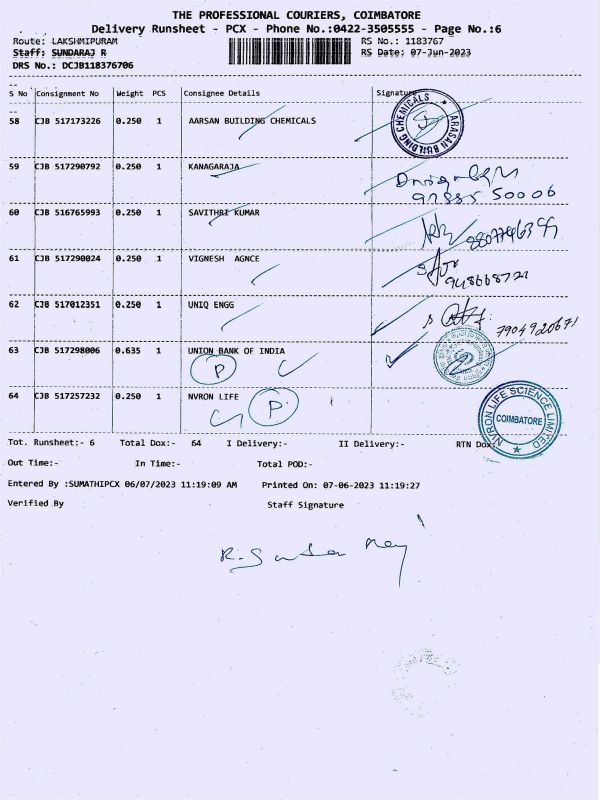 THE PROFESSIONAL COURIERS, COIMBATORE
Delivery Runsheet - PCX - Phone No.:0422-3505555 - Page No.:6
Route: LAKSHMIPURAM RS No.: 1183767
Staff: SUNDARAJ R RS Date: 07-Jun-2023
DRS No.: DCJB118376706
S No Consignment No Weight PCS Consignee Details Signature
58 CJB 517173226 0.250 1 AARSAN BUILDING CHEMICALS ARASAN BUILDING CHEMICALS
59 CJB 517290792 0.250 1 KANAGARAJA
60 CJB 516765993 0.250 1 SAVITHRI KUMAR
61 CJB 517290024 0.250 1 VIGNESH AGNCE
62 CJB 517012351 0.250 1 UNIQ ENGG 7904920671
63 CJB 517298006 0.635 1 UNION BANK OF INDIA
P
64 CJB 517257232 0.250 1 NVRON LIFE P NVRON LIFE SCIENCE LIMITED COIMBATORE
Tot. Runsheet:- 6 Total Dox:- 64 I Delivery:- II Delivery:- RTN Dox:
Out Time:- In Time:- Total POD:-
Entered By :SUMATHIPCX 06/07/2023 11:19:09 AM Printed On: 07-06-2023 11:19:27
Verified By Staff Signature